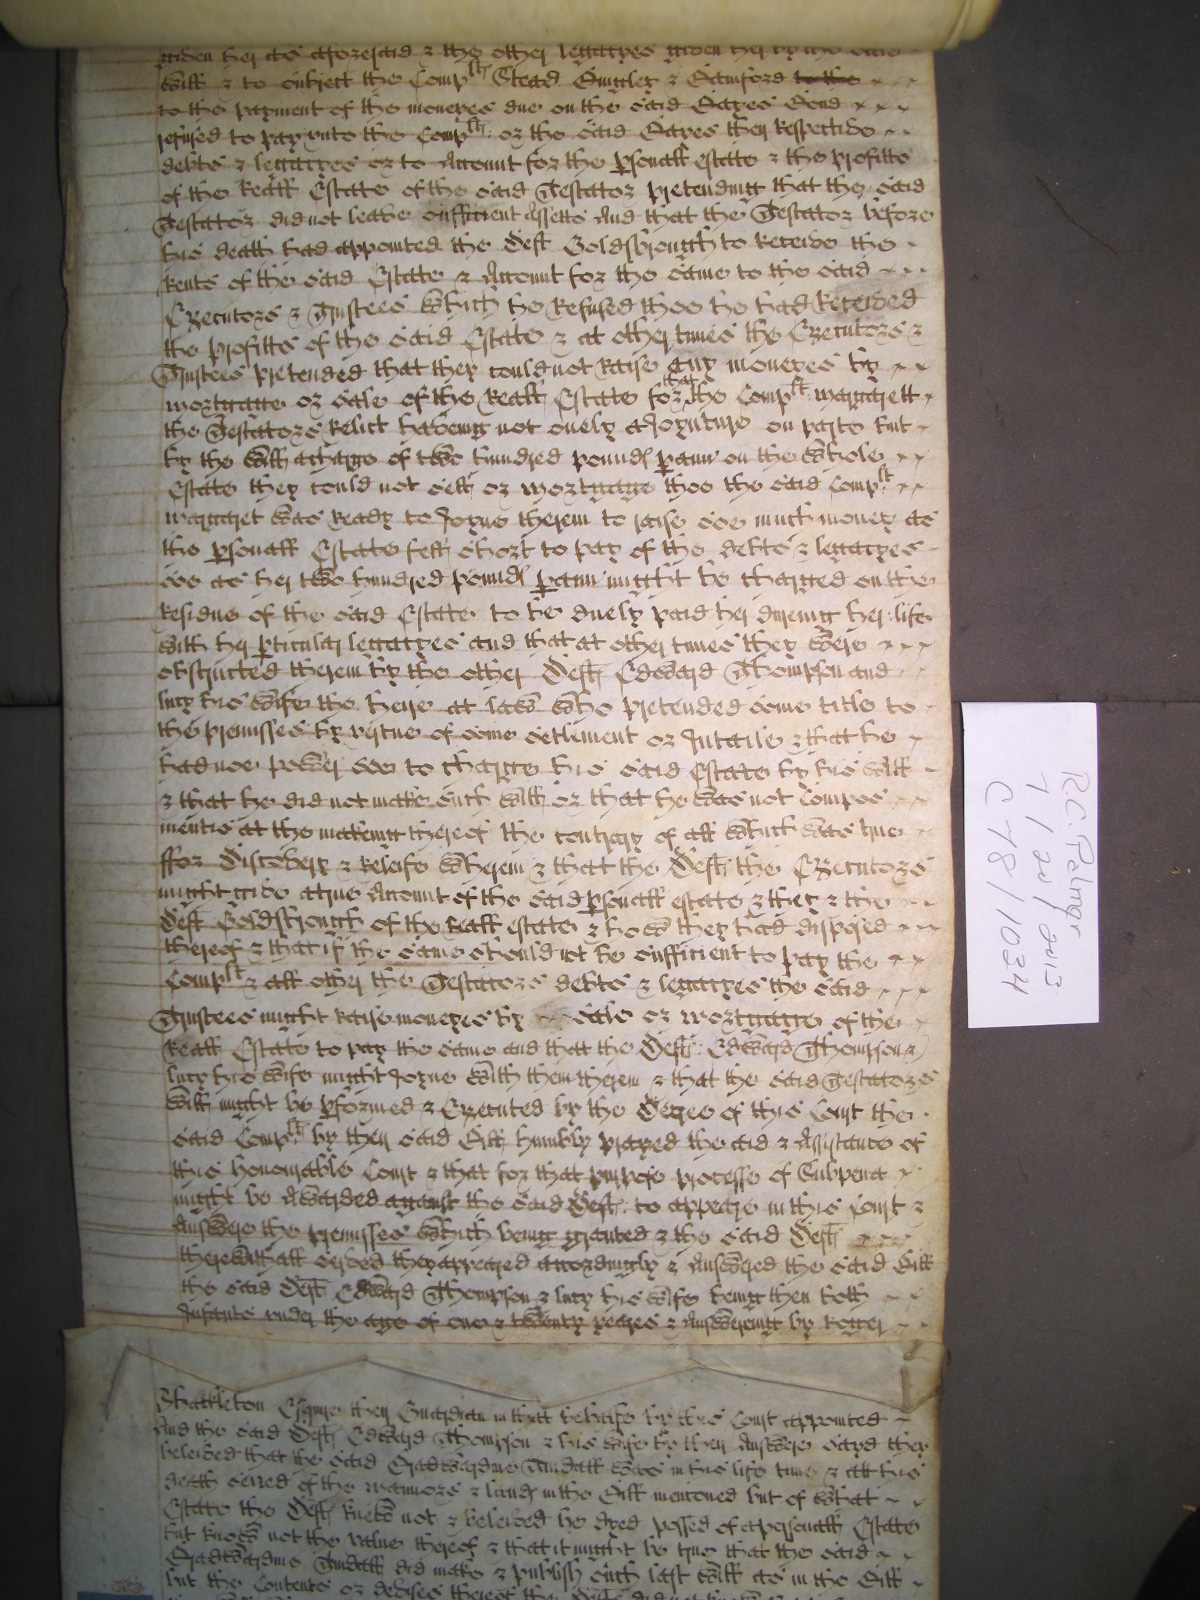 given her as aforesaid & the other legacyes given her by the said
will & to subject the Complts Stead Empley & Samford to the
to the payment of the moneyes due on the said Sayes Bond
refused to pay unto the Complts or the said Sayes their Respective
debts & legacyes or to Accomnt for the psonall estate & the profitts
of the Reall Estate of the said Testator pretending that the said
Testator did not leave sufficient Assetts And that the Testator before
his death had appointed the Deft Goldsbrough to Receive the
Rents of the said Estate & Accomnt for the same to the said
Executors & Trustees which he Refused thoo he had Received
the profitts of the said Estate & at other times the Executors &
Trustees pretended that they could not Raise any moneyes by
mortgage or sale of the Reall Estate for that the Complt Margarett
the Testators Relict haveing not onely a Joynture on parte but
by the will a charge of two hundred pounds p ann on the whole
Estate they could not sell or mortgage thoo the said Complt
Margaret was Ready to Joyne therein to raise soe much money as
the psonall Estate fell short to pay of the debts & legacyes
soe as her two hundred pounds p ann might be charged on the
Residue of the said Estate to be duely paid her dureing her life
with her pticular legacyes and that at other times they were
obstructed therein by the other Defts Edward Thompson and
lucy his wife the heire at law who pretended some title to
the premisses by vertue of some setlement or Intaile & that he
had noe power soe to charge his said Estate by his will
& that he did not make such will or that he was not Compos
mentis at the makeing thereof the contrary of all which was true
ffor Discovery & Releife wherein & that the Defts the Executors
might give a true Accomnt of the said psonall estate & they & the
Deft Goldsbrough of the Reall estate & how they had disposed
thereof & that if the same should not be sufficient to pay the
Complts & all other the Testators debts & legacyes the said
Trustees might Raise moneyes by sale or mortgage of the
Reall Estate to pay the same and that the Defts Edward Thompson &
lucy his wife might Joyne with them therein & that the said Testators
will might be pformed & Executed by the Decree of this Court the
said Complts by their said Bill humbly prayed the aid & Assistance of
this honourable Court & that for that purpose processe of Subpena
might be Awarded against the said Defts to appeare in this Court &
Answere the premisses which being granted & the said Defts
therewithall served they appeared accordingly & Answered the said Bill
the said Defts Edward Thompson & lucy his wife being then both
Infants under the age of one & twenty yeares & Answereing by Roger
Shackleton Esquire their Guardian in that behalfe by this Court appointed
And the said Defts Edward Thompson & his wife by their Answere sayd they
beleived that the said Bradwardine Tindall was in his life time & att his
death seized of the mannors & lands in the Bill mentioned but of what
Estate the Defts knew not & beleived he dyed possed of a personall Estate
but knows not the value thereof & that it might be true that the said
Bradwardine Tindall did make & publish such last will as in the Bill
but the Contents or devises thereof the Defts did not know
RC. Palmer
7 / 201 2013
C 78 / 1034